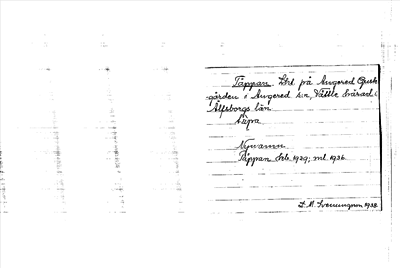 Täppan. Lht på Angered Gust-
gården i Angered sn, Vättle härad,
Älfsborgs län.
Täpa
Nynamn.
Täppan Lht. 1929; ml. 1936.
S. M. Svenungson 1938.